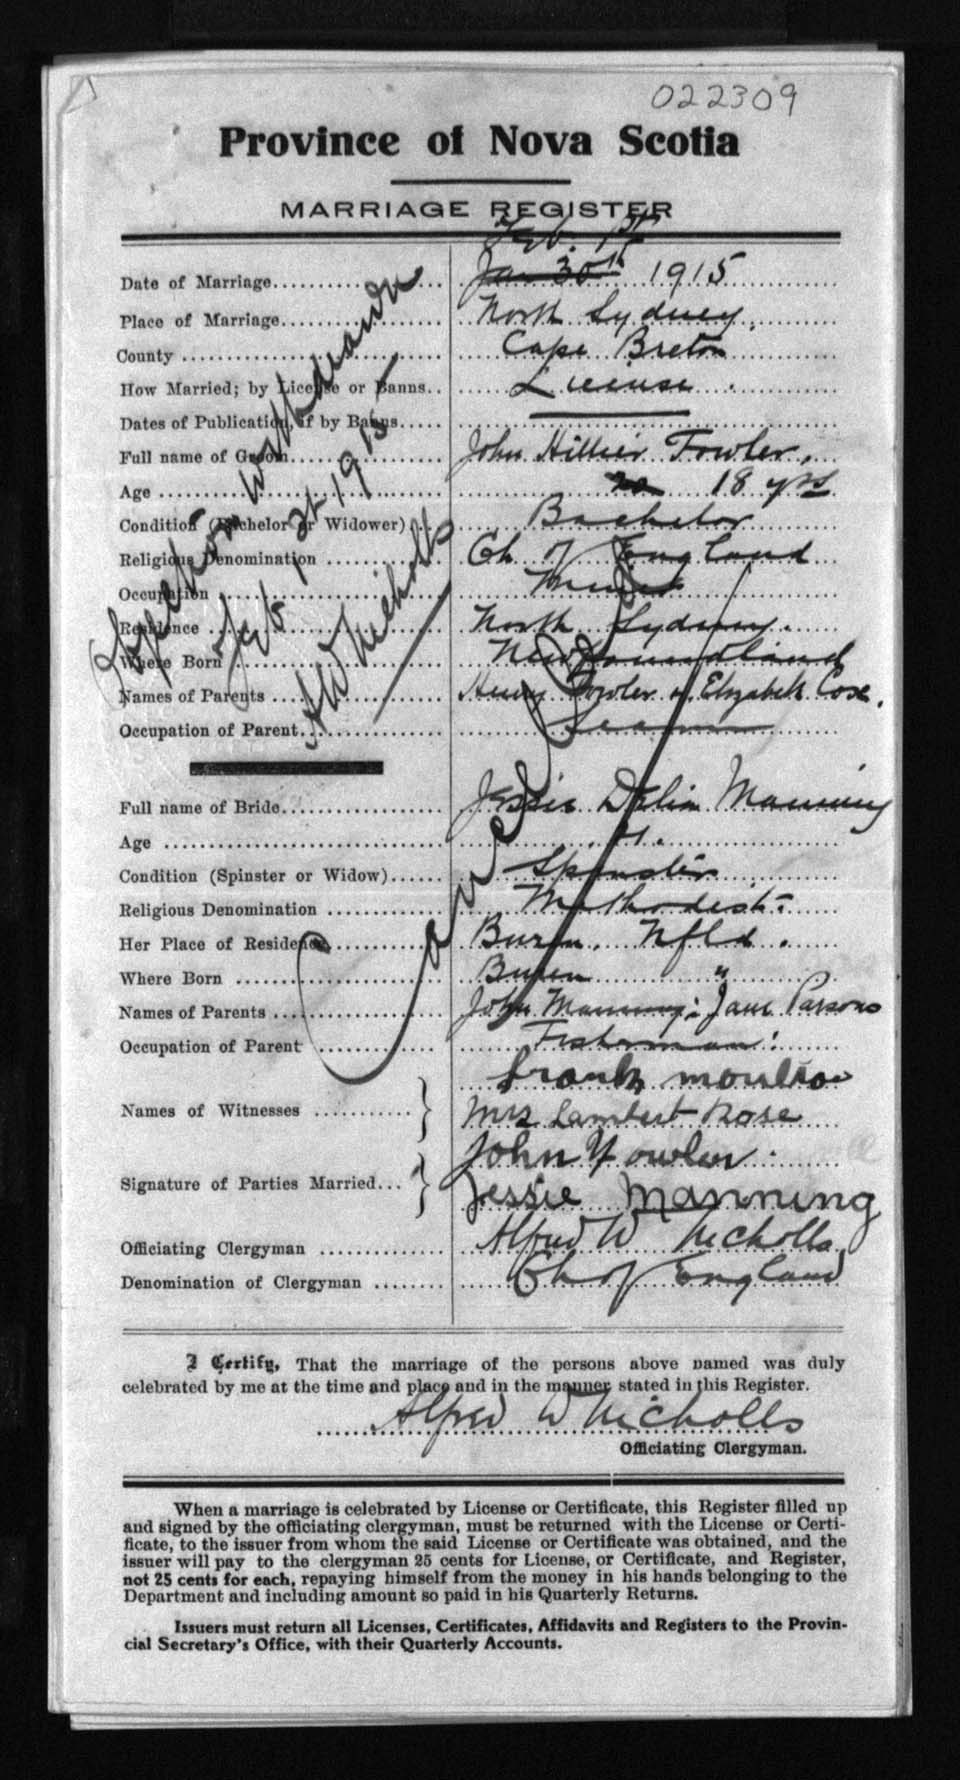 022309
Province of Nova Scotia
MARRIAGE REGISTER
Feb. 1st
Date of Marriage Jan 30th 1915
Place of Marriage North Sydney.
County Cape Breton
How Married; by License or Banns License
Dates of Publication, if by Banns
Full name of Groom John Hillier Fowler.
Age 20 18 yrs
Condition (Bachelor or Widower) Bachelor
Religious Denomination Ch of England
Occupation
Residence North Sydney.
Where Born Newfoundland
Names of Parents Henry Fowler Elizabeth Cox.
Occupation of Parent
Full name of Bride Jessie Delia Manning
Age 21.
Condition (Spinster or Widow) Spinster
Religious Denomination Methodist
Her Place of Residence Burin. Nfld.
Where Born Burin "
Names of Parents John Manning: Jane Parsons
Occupation of Parent Fisherman:
Names of Witnesses Frank Moulton
Mrs Lambert Rose
Signature of Parties Married John Fowler
Jessie Manning
Officiating Clergyman Alfred W Nicholls
Denomination of Clergyman Ch of England
withdrawn
Feb 1st 1915
A W Nicholls
Cancelled
I Certify, That the marriage of the persons above named was duly
celebrated by me at the time and place and in the manner stated in this Register.
Alfred W Nicholls
Officiating Clergyman.
When a marriage is celebrated by License or Certificate, this Register filled up
and signed by the officiating clergyman, must be returned with the License or Certi-
ficate, to the issuer from whom the said License or Certificate was obtained, and the
issuer will pay to the clergyman 25 cents for License, or Certificate, and Register,
not 25 cents for each, repaying himself from the money in his hands belonging to the
Department and including amount so paid in his Quarterly Returns.
Issuers must return all Licenses, Certificates, Affidavits and Registers to the Provin-
cial Secretary's Office, with their Quarterly Accounts.